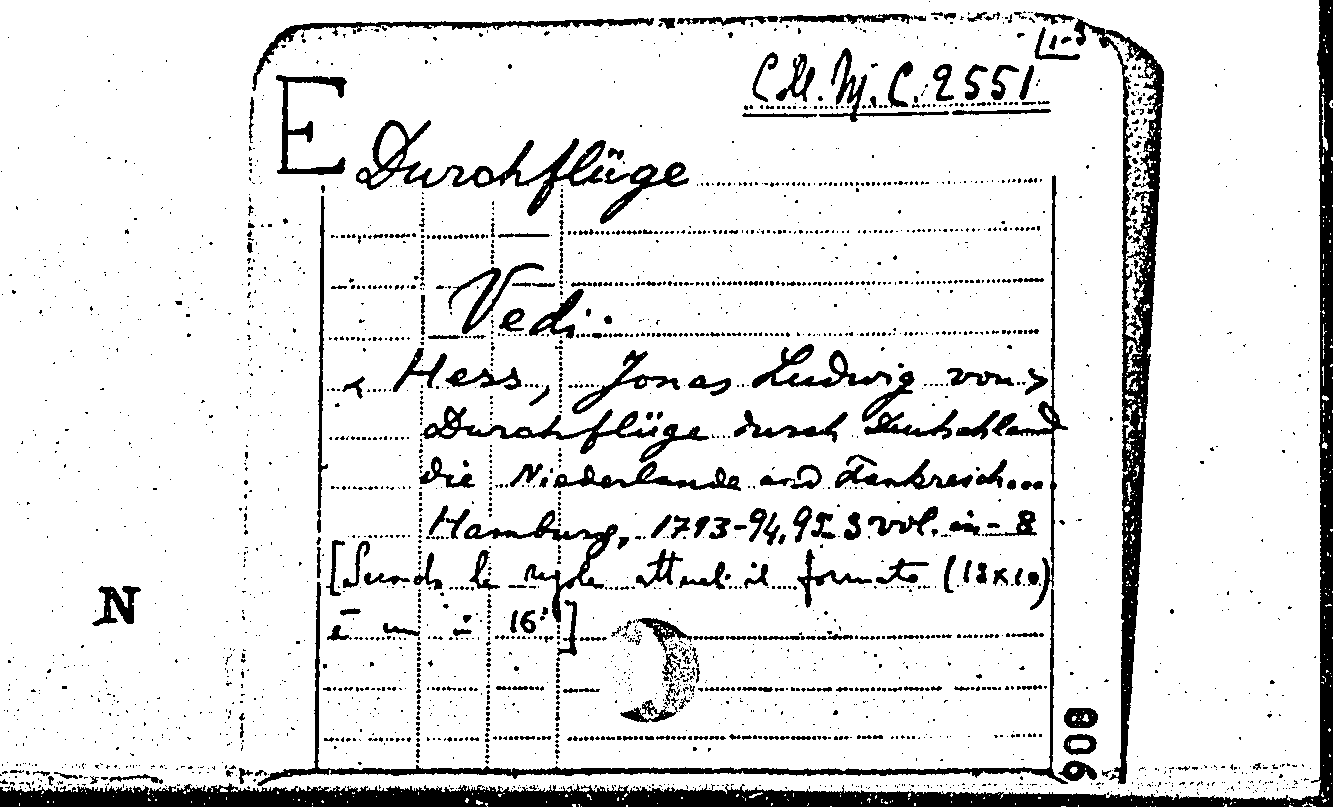 1-3
Coll. M. C. 2551
E
Durchflüge
Vedi:
< Hess, Jonas Ludwig von >
Durchflüge durch Deutschland
die Niederlande und Frankreich....
Hamburg, 1793-94, 95. 3 vol. in-8
[Secondo le regole attuali il formato (18x10)
è un in 16°]
N
908